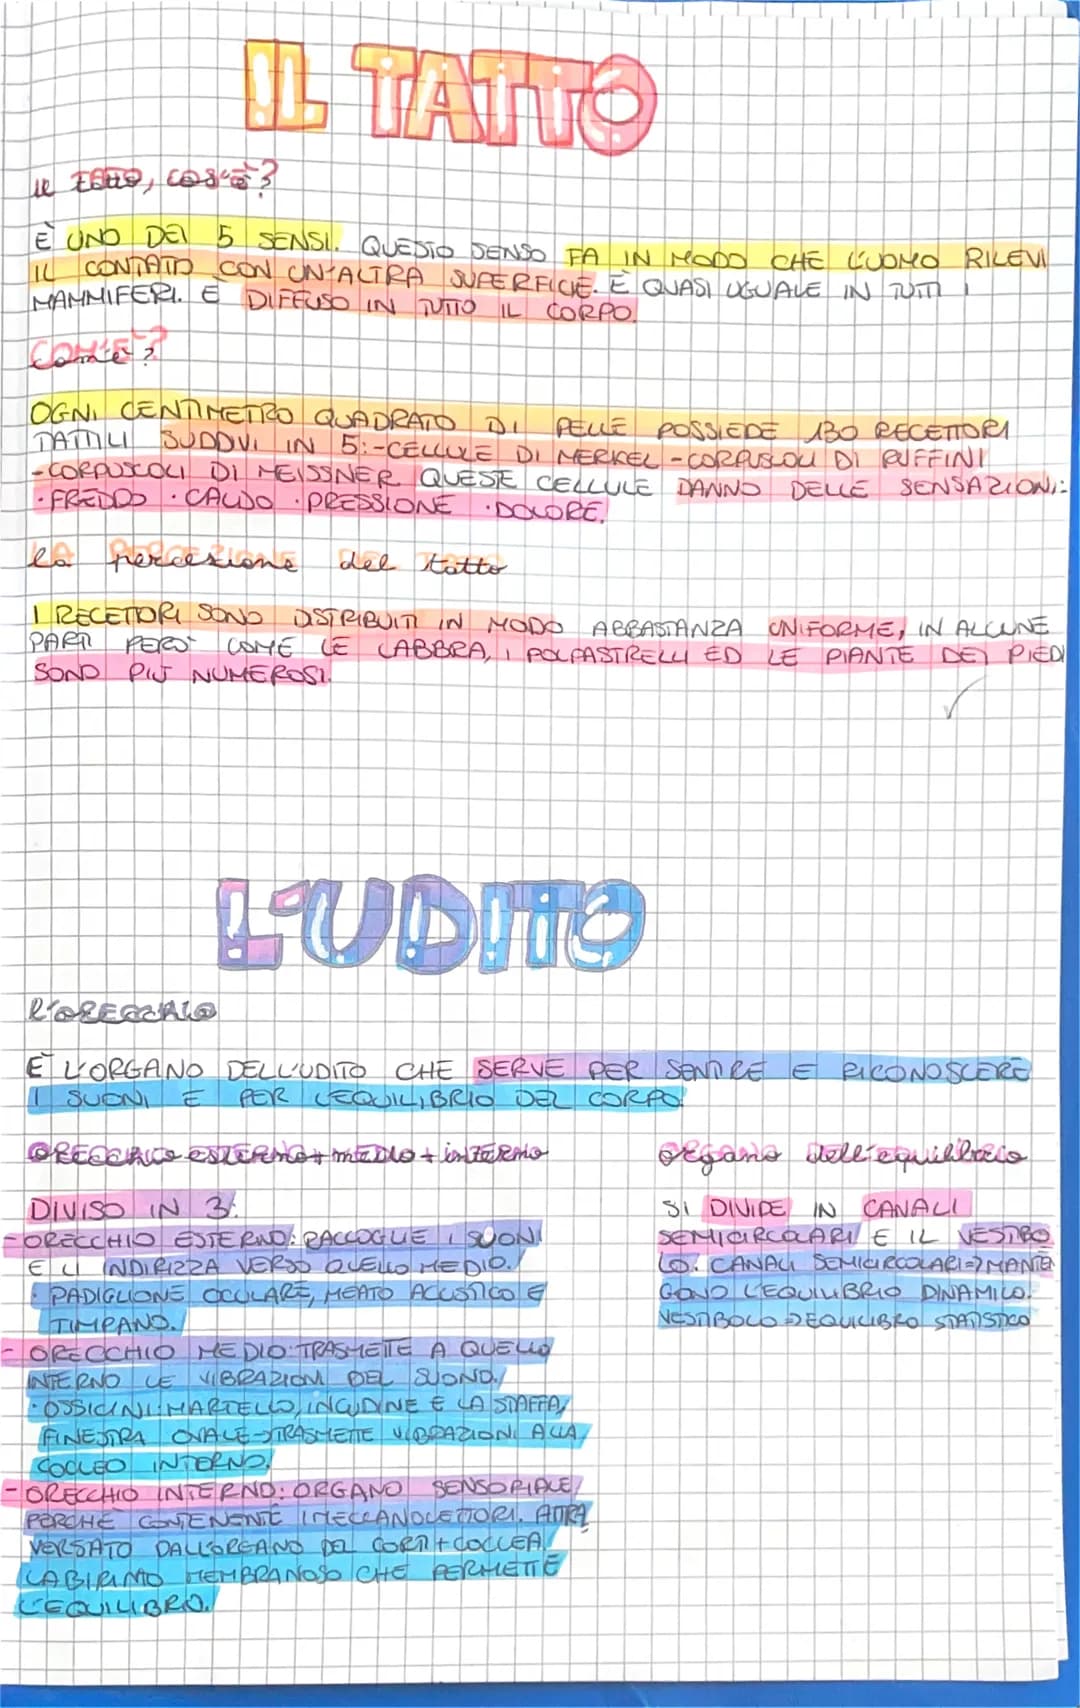 IL TATTO
il tatto, cos'è?
È UNO DEI 5 SENSI. QUESTO SENSO FA IN MODO CHE L'UOMO RILEVI
IL CONTATO CON UN'ALTRA SUPERFICIE. È QUASI UGUALE IN TUTTI I
MAMMIFERI. È DIFFUSO IN TUTTO IL CORPO.
Com'è?
OGNI CENTIMETRO QUADRATO DI PELLE POSSIEDE 130 RECETTORI
TATTILI SUDDVI IN 5:-CELLULE DI MERKEL -CORPUSCOLI DI RUFFINI
-CORPUSCOLI DI MEISSNER QUESTE CELLULE DANNO DELLE SENSAZIONI:
·FREDDO ·CALDO ·PRESSIONE ·DOLORE.
la percezione del tatto
I RECETTORI SONO DISTRIBUITI IN MODO ABBASTANZA UNIFORME, IN ALCUNE
PARTI PERÒ COME LE LABBRA, I POLPASTRELLI ED LE PIANTE DEI PIEDI
SONO PIÙ NUMEROSI.
L'UDITO
l'ORECCHIO
È L'ORGANO DELL'UDITO CHE SERVE PER SENTIRE E RICONOSCERE
I SUONI E PER L'EQUILIBRIO DEL CORPO
ORECCHIO ESTERNO + MEDIO + INTERNO
DIVISO IN 3:
-ORECCHIO ESTERNO: RACCOGLIE I SUONI
E LI INDIRIZZA VERSO QUELLO MEDIO.
· PADIGLIONE OCULARE, MEATO ACUSTICO E
TIMPANO.
- ORECCHIO MEDIO: TRASMETTE A QUELLO
INTERNO LE VIBRAZIONI DEL SUONO.
·OSSICINI: MARTELLO, INCUDINE E LA STAFFA,
FINESTRA OVALE→TRASMETTE VIBRAZIONI ALLA
COCLEO INTERNO.
-ORECCHIO INTERNO: ORGANO SENSORIALE
PERCHÉ CONTENENTE I MECCANOCETTORI. ATTRA
VERSATO DALL'ORGANO DEL CORTI + COCLEA.
LABIRINTO MEMBRANOSO CHE PERMETTE
L'EQUILIBRO.
organo dell'equilibrio
SI DIVIDE IN CANALI
SEMICIRCOLARI E IL VESTIBO
LO. CANALI SEMICIRCOLARI=> MANTE
GONO L'EQUILIBRIO DINAMICO.
VESTIBOLO => EQUILIBRO STATISTICO